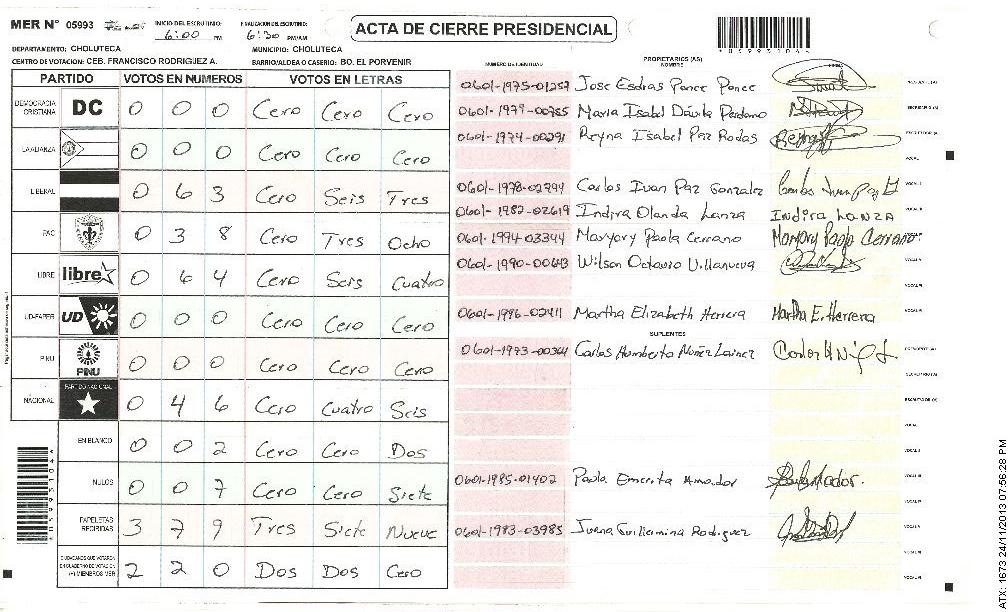 MER N° 05993
INICIO DEL ESCRUTINIO: 6:00 PM
FINALIZACION DEL ESCRUTINIO: 6:30 PM/AM
ACTA DE CIERRE PRESIDENCIAL
DEPARTAMENTO: CHOLUTECA
MUNICIPIO: CHOLUTECA
CENTRO DE VOTACION: CEB. FRANCISCO RODRIGUEZ A.
BARRIO/ALDEA O CASERIO: BO. EL PORVENIR
PARTIDO VOTOS EN NUMEROS VOTOS EN LETRAS
DEMOCRACIA CRISTIANA DC 0 0 0 Cero Cero Cero
LA ALIANZA 0 0 0 Cero Cero Cero
LIBERAL 0 6 3 Cero Seis Tres
PAC 0 3 8 Cero Tres Ocho
LIBRE libre 0 6 4 Cero Seis Cuatro
UD-FAPER UD 0 0 0 Cero Cero Cero
PINU PINU 0 0 0 Cero Cero Cero
NACIONAL PARTIDO NACIONAL 0 4 6 Cero Cuatro Seis
EN BLANCO 0 0 2 Cero Cero Dos
NULOS 0 0 7 Cero Cero Siete
PAPELETAS RECIBIDAS 3 7 9 Tres Siete Nueve
CIUDADANOS QUE VOTARON EN CUADERNO DE VOTACION (+) MIEMBROS MER 2 2 0 Dos Dos Cero
NUMERO DE IDENTIDAD
PROPIETARIOS (AS)
NOMBRE
FIRMA
0601-1975-01257 Jose Esdras Ponce Ponce
0601-1979-00755 Maria Isabel Dávila Perdomo
0601-1974-00291 Reyna Isabel Paz Rodas
0601-1978-02744 Carlos Ivan Paz Gonzalez
0601-1982-02619 Indira Olanda Lanza INDIRA LANZA
0601-1994-03344 Maryory Paola Cerrano Maryory Paola Cerrano
0601-1990-00643 Wilson Octavio Villanueva
0601-1996-02411 Martha Elizabeth Herrera Martha E. Herrera
SUPLENTES
0601-1973-00364 Carlos Humberto Nuñez Lainez
0601-1985-01402 Paola Emerita Amador
0601-1983-03985 Juana Guillermina Rodriguez
ATX: 1673 24/11/2013 07:56:28 PM